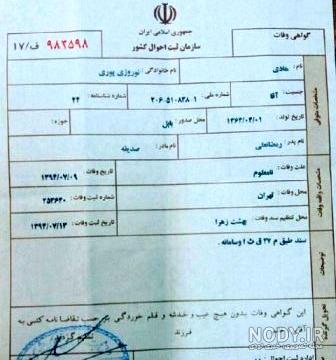 جمهوری اسلامی ایران
سازمان ثبت احوال کشور
گواهی وفات
۹۸۳۵۹۸ ف/۱۷
نام: هادی
نام خانوادگی: نوروزی پوری
جنسیت: آقا
شماره ملی: ۲۰۶۰۵۱۰۸۳۸۰۱
شماره شناسنامه: ۲۴
تاریخ تولد: ۱۳۶۴/۰۴/۰۱
محل صدور: بابل
حوزه:
نام پدر: رمضانعلی
نام مادر: صدیقه
علت وفات: نامعلوم
تاریخ وفات: ۱۳۹۴/۰۷/۰۹
محل وفات: تهران
شماره ثبت وفات: ۲۵۳۶۴۰
محل تنظیم سند وفات: بهشت زهرا
تاریخ ثبت وفات: ۱۳۹۴/۰۷/۱۳
سند طبق م ۲۷ ق ث ا وسامانه.
این گواهی وفات بدون هیچ عیب و خدشه و قلم خوردگی بر حسب تقاضا نامه کتبی به
فرزند
مشخصات متوفی
مشخصات واقعه وفات
NODY.IR